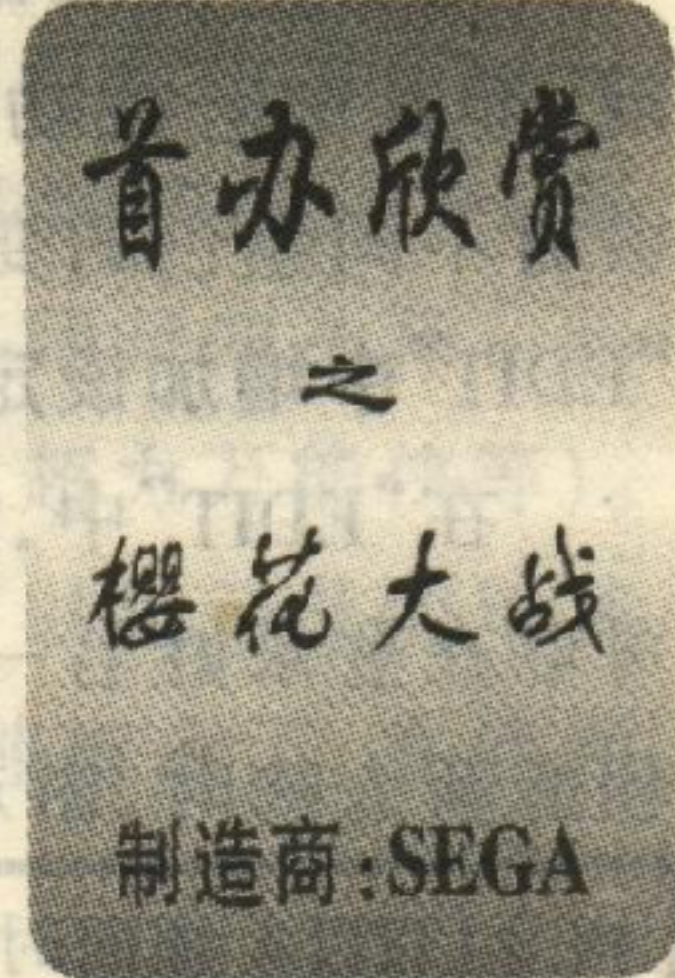 首办欣赏
之
樱花大战
制造商:SEGA